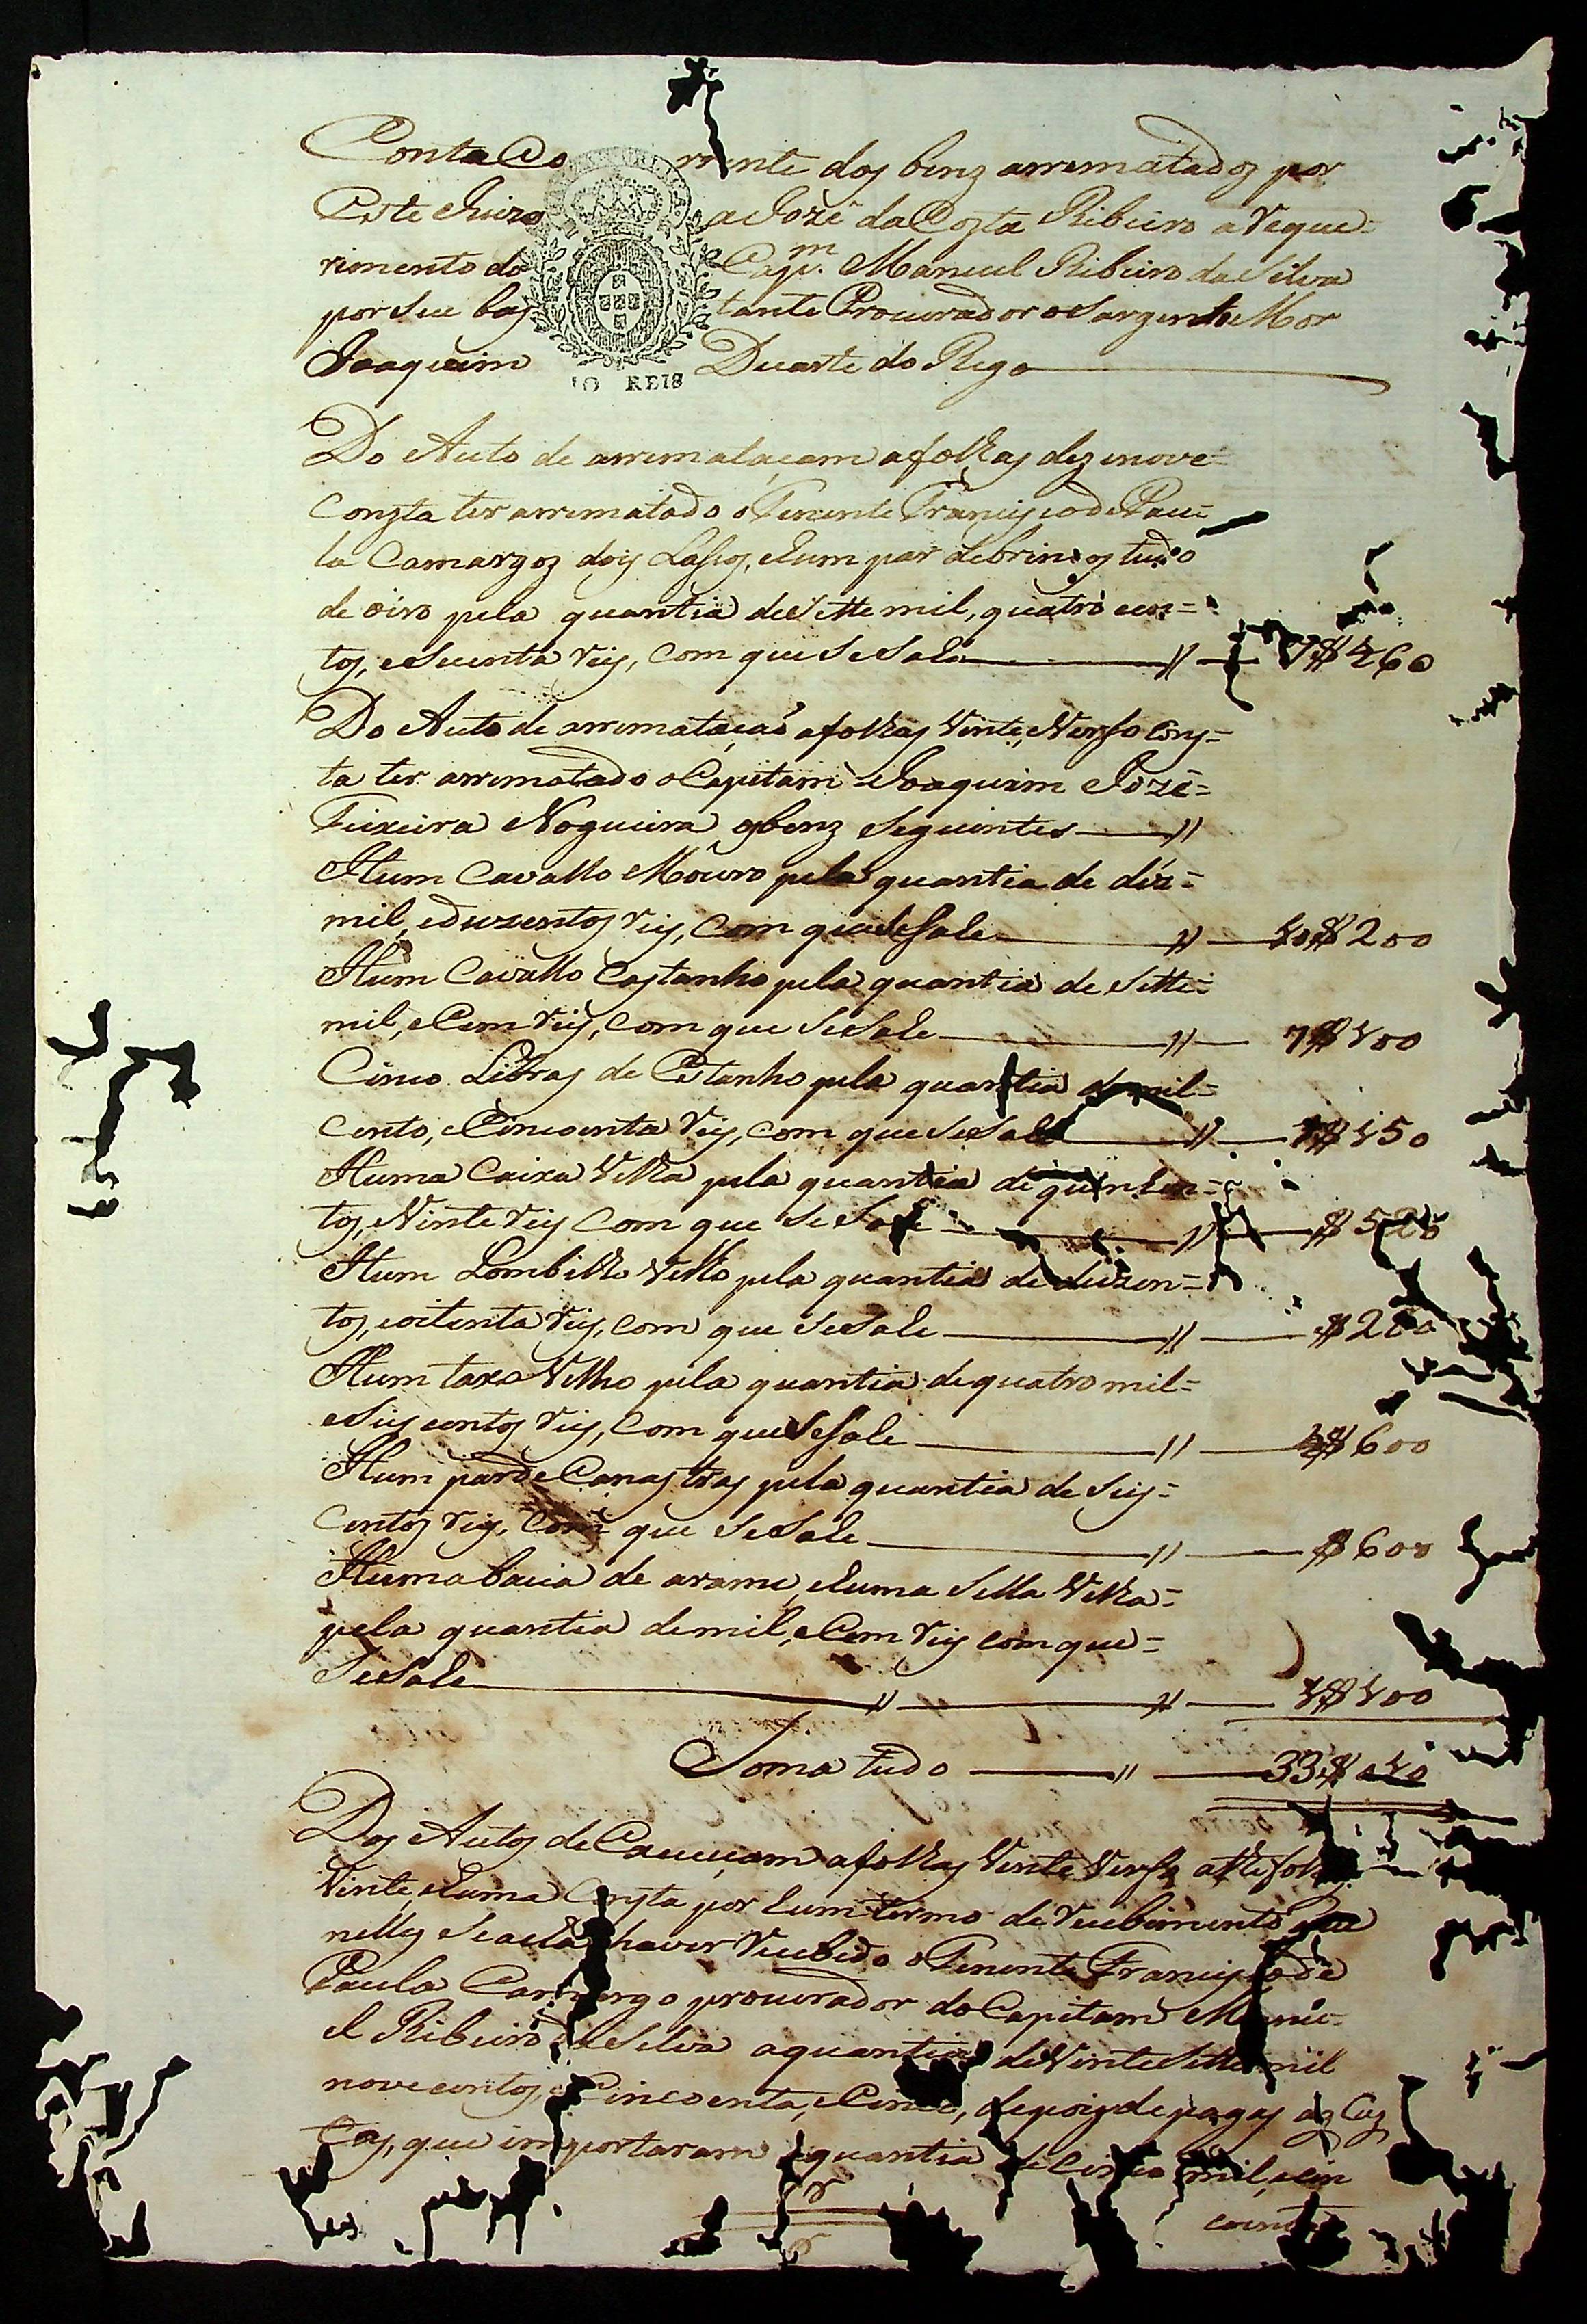 Conta Co rrente dos benz arrematados por
Este Juizo a Jozé da Costa Ribeiro a Reque=
rimento do Capm. Manuel Ribeiro da Silva
por Seu bas tante Procurador o Sargento Mor
Joaquim Duarte do Rego
IO REIS
Do Auto de arrematacam a folhas dezenove=
Consta ter arrematado o Tenente Francisco de Pau=
la Camargos dois Lassos, e hum par de brincos tudo
de oiro pela quantia de Sette mil, quatro cen=
tos, e Secenta reis, com que Se Sale // 7$460
Do Auto de arrematacaó a folhas Vinte, Verso Cons=
ta ter arrematado o Capitam Joaquim Jozé=
Teixeira Nogueira os benz Seguintes //
Hum Cavallo Mouro pela quantia de dez=
mil, e duzentos reis, com que Se Sale // 10$200
Hum Cavallo Castanho pela quantia de Sette=
mil, e Cem reis, com que Se Sale // 7$100
Cinco Libras de Estanho pela quantia de mil=
cento, e Cincoenta reis, com que Se Sale // 1$150
Huma Caixa Velha pela quantia de quinhen=
tos, e Vinte reis com que Se Sale // $520
Hum Lombilho Velho pela quantia de duzen=
tos, e oitenta reis, com que Se Sale // $280
Hum taxo Velho pela quantia de quatro mil=
e Seis centos reis, com que Se Sale // 4$600
Hum par de Canastras pela quantia de Seis=
centos reis, Com que Se Sale // $600
Huma bacia de arame, e huma Sella Velha=
pela quantia de mil, e Cem reis com que=
Se Sale // // 1$100
Soma tudo // 33$010
Dos Autos de Caucuam a folhas Vinte Verso athe folhas
Vinte, e huma Consta por hum termo de recebimento que
nelles Se acha haver recebido o Tenente Francisco de
Paula Camargo procurador do Capitam Manu=
el Ribeiro da Silva a quantia de Vinte Sette mil
nove centos, e Cincoenta, e Cinco, depois de pagas as Cus
tas, que importaram a quantia de cinco mil, e cin
coenta